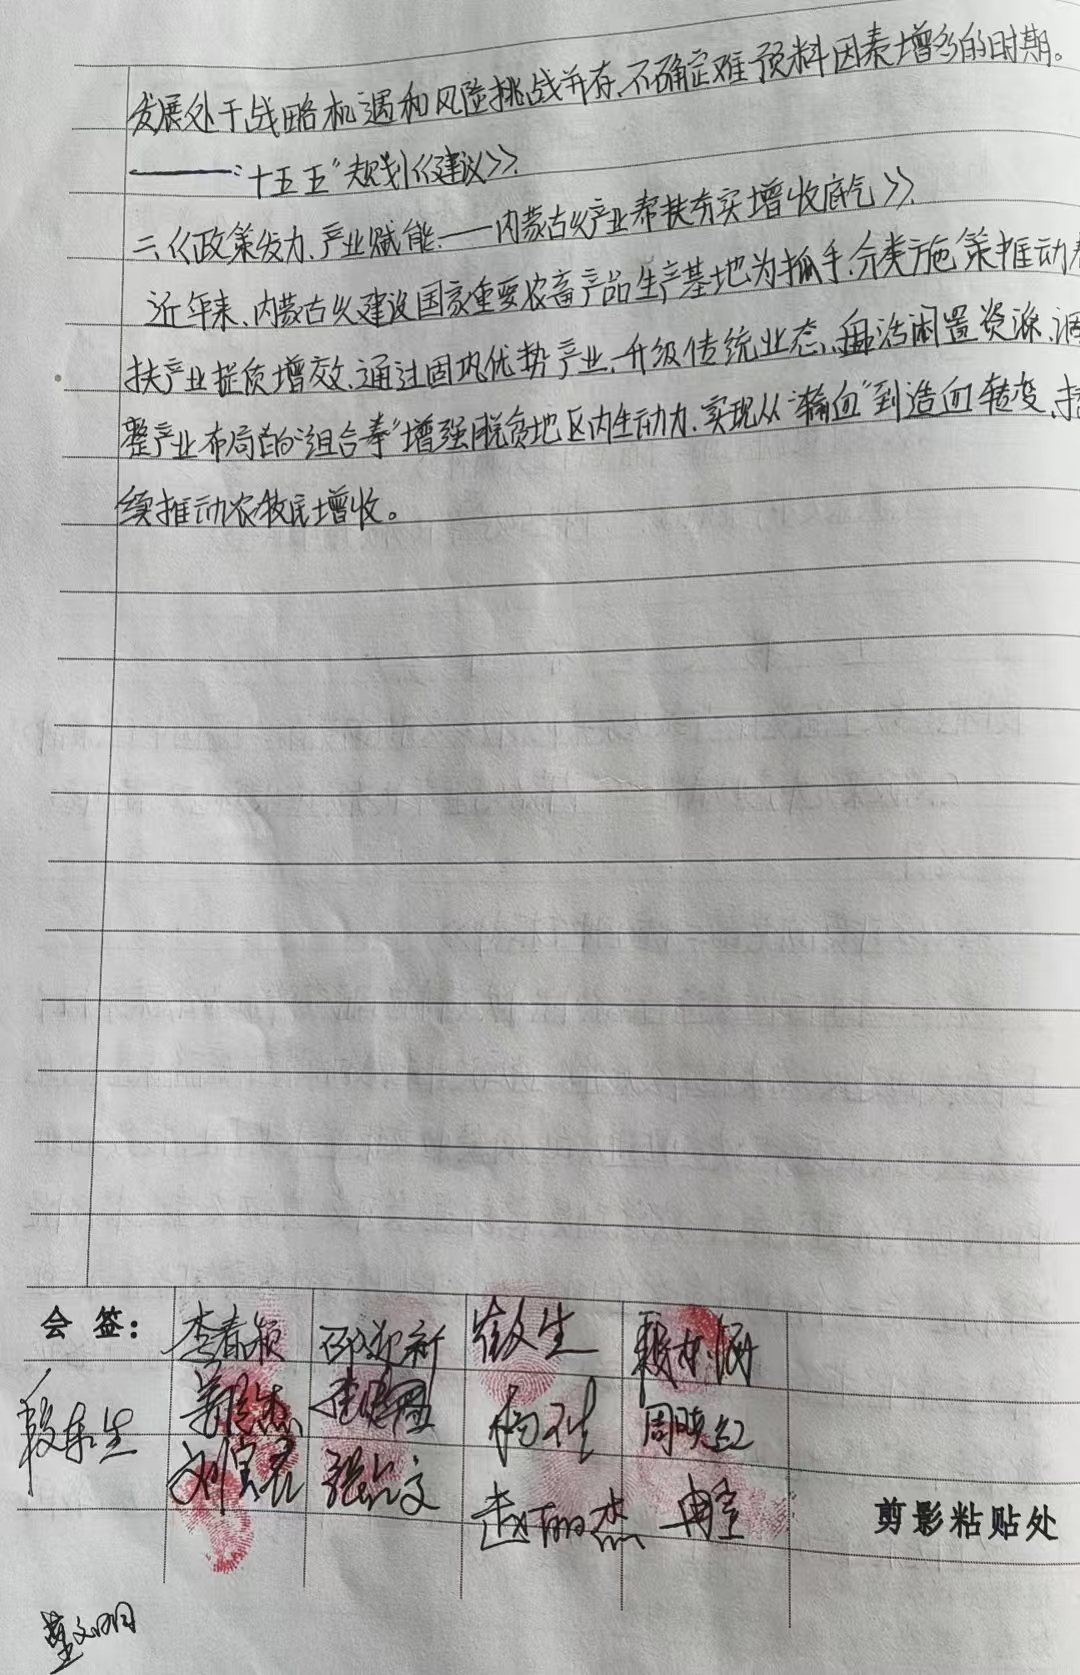 发展处于战略机遇和风险挑战并存、不确定难预料因素增多的时期。
———"十五五"规划《建议》。
二、《政策发力、产业赋能——内蒙古以产业帮扶夯实增收底气》。
近年来、内蒙古以建设国家重要农畜产品生产基地为抓手、分类施策推动
扶产业提质增效、通过固巩优势产业、升级传统业态、盘活闲置资源、调
整产业布局的"组合拳"增强脱贫地区内生动力、实现从"输血"到造血转变、
续推动农牧民增收。
会 签： 李春颖 邵迎新
杨
周晓红
刘 张 文
赵丽杰
剪影粘贴处
董文明